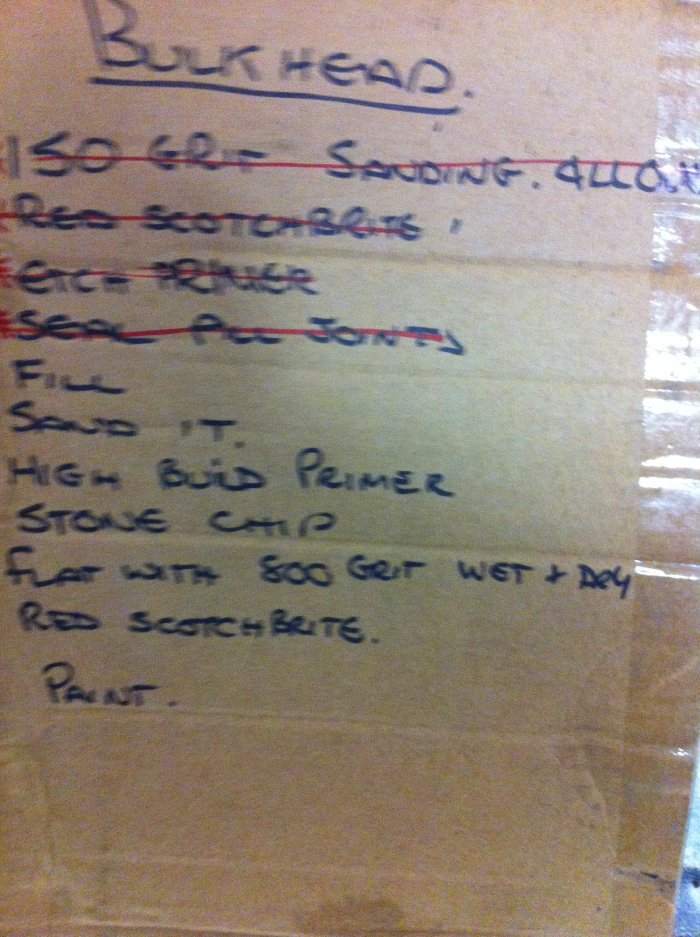 BULKHEAD.
150 GRIT SANDING.
RED SCOTCHBRITE
ETCH PRIMER
SEAL ALL JOINTS
FILL
SAND IT.
HIGH BUILD PRIMER
STONE CHIP
FLAT WITH 800 GRIT WET + DRY
RED SCOTCHBRITE.
PAINT.